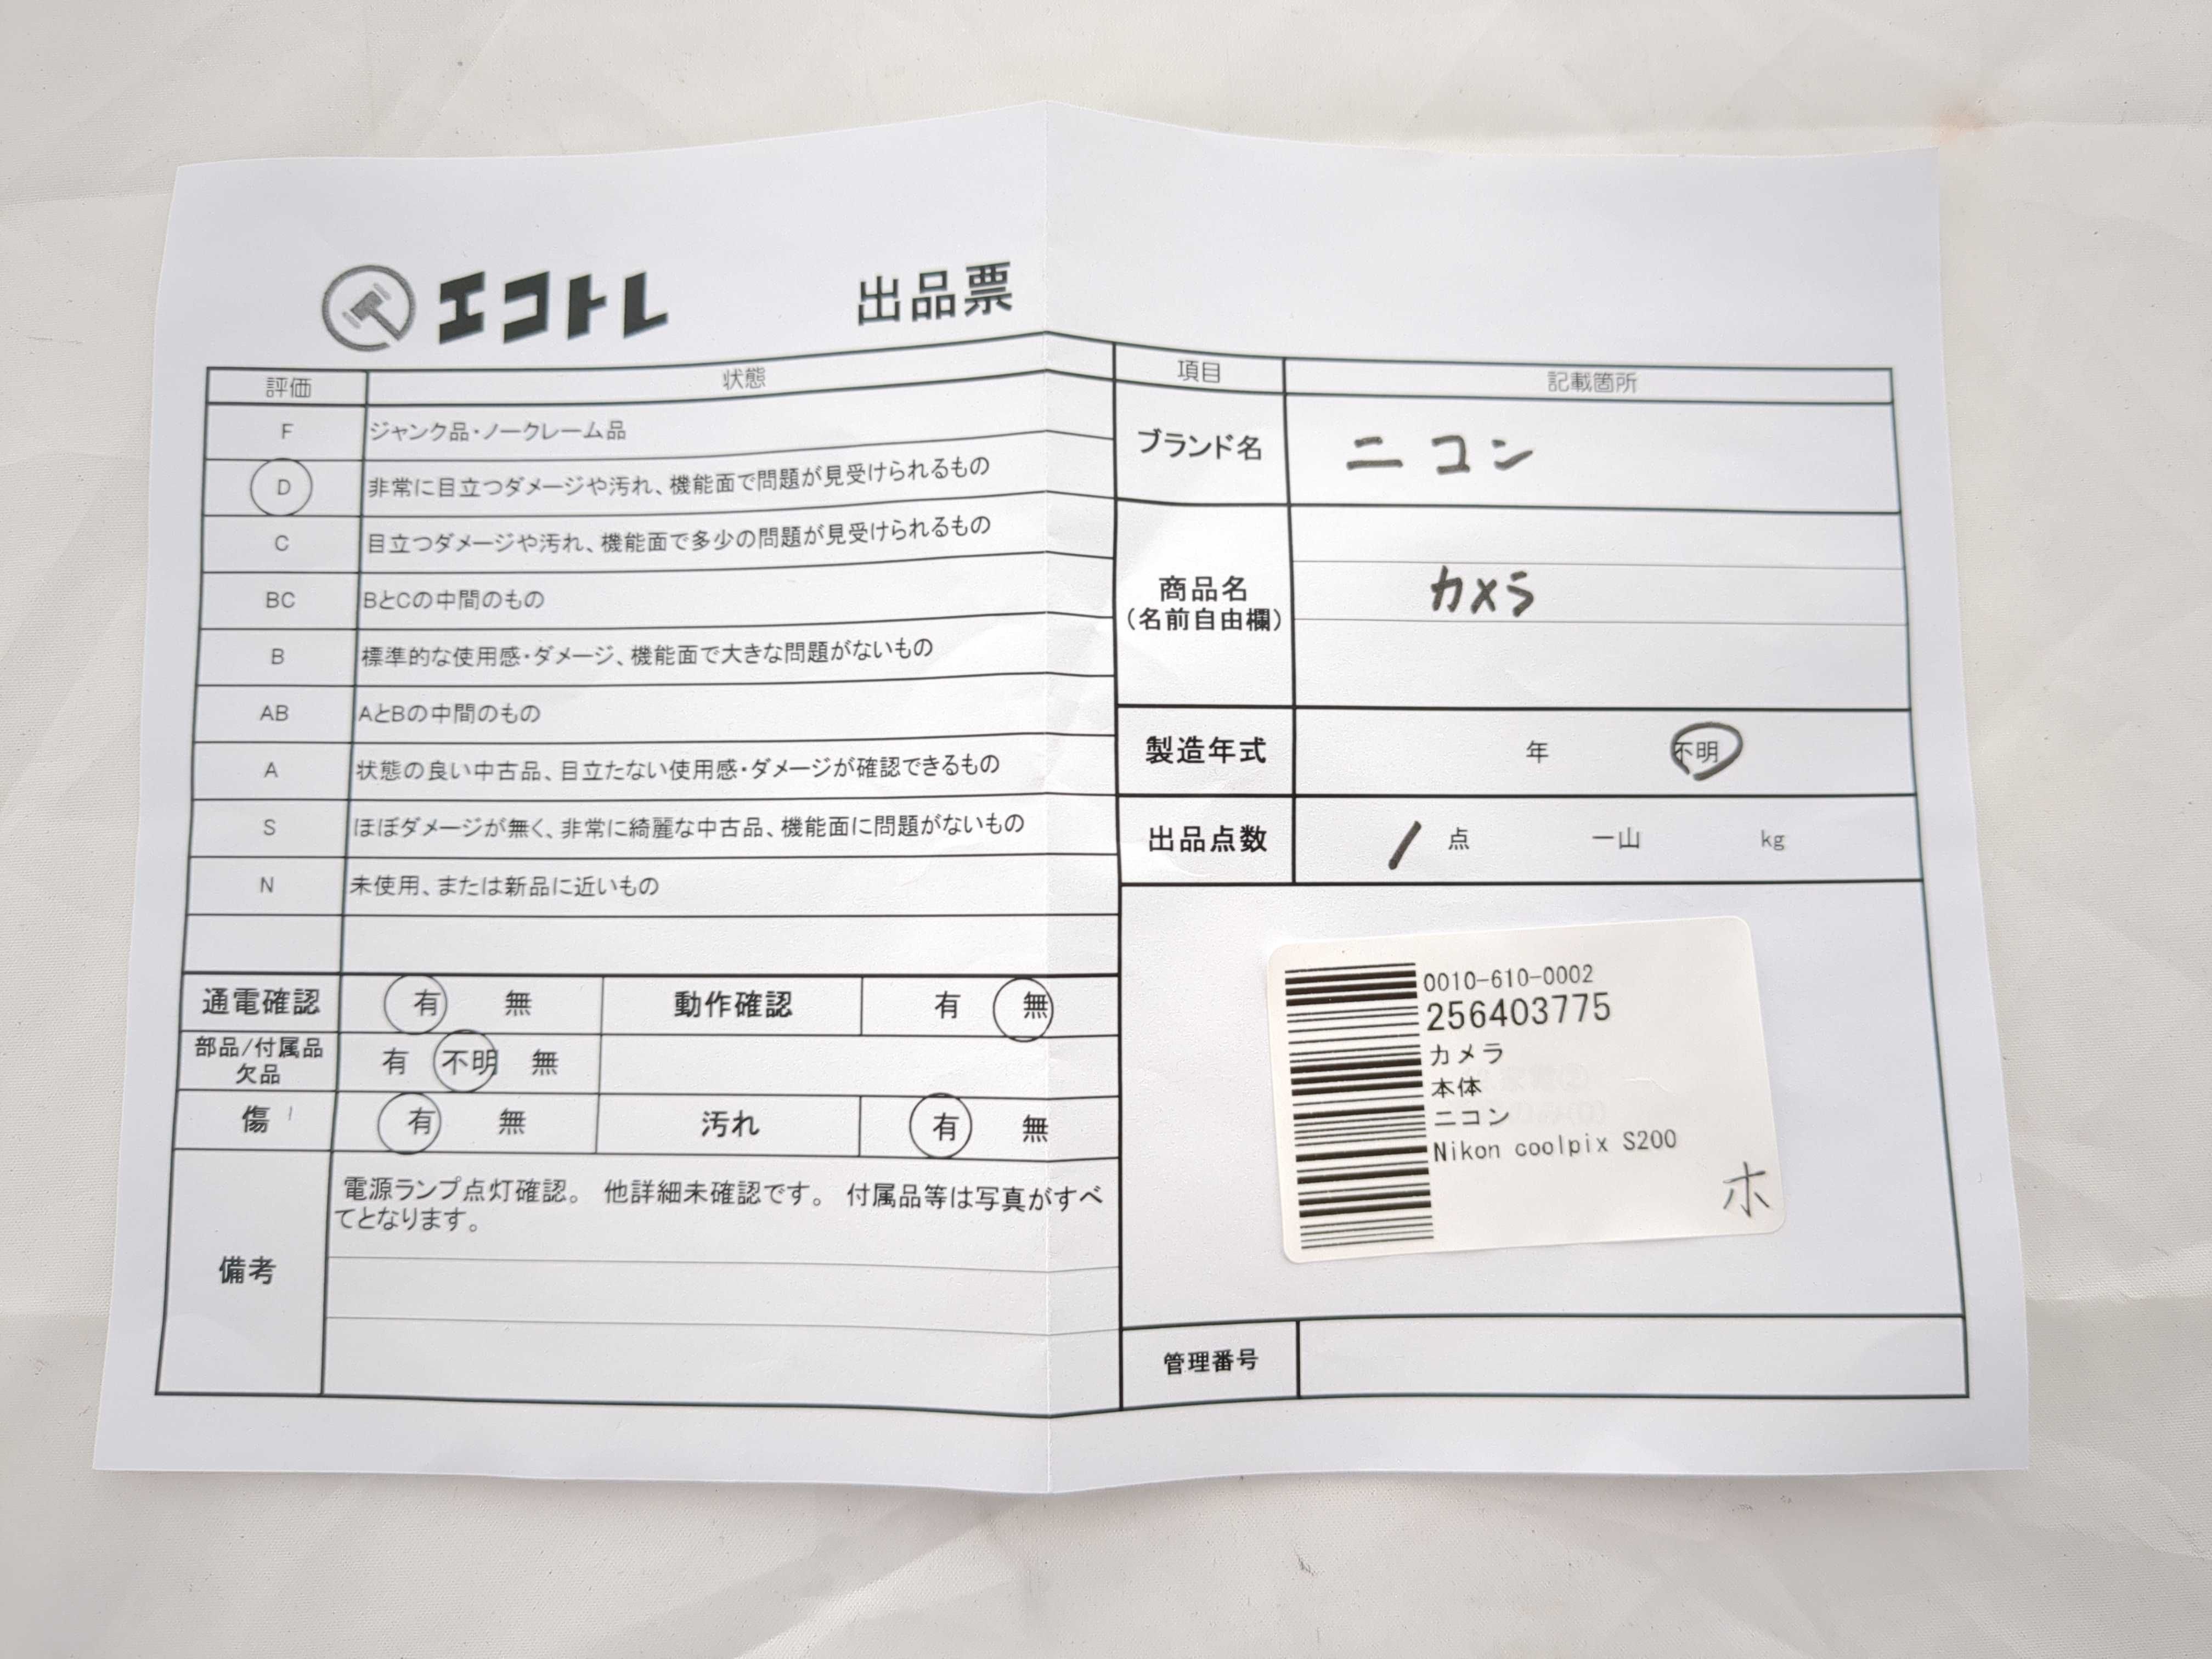 エコトレ 出品票
評価 状態
F ジャンク品・ノークレーム品
D 非常に目立つダメージや汚れ、機能面で問題が見受けられるもの
C 目立つダメージや汚れ、機能面で多少の問題が見受けられるもの
BC BとCの中間のもの
B 標準的な使用感・ダメージ、機能面で大きな問題がないもの
AB AとBの中間のもの
A 状態の良い中古品、目立たない使用感・ダメージが確認できるもの
S ほぼダメージが無く、非常に綺麗な中古品、機能面に問題がないもの
N 未使用、または新品に近いもの
通電確認 有 無 動作確認 有 無
部品/付属品
欠品 有 不明 無
傷 有 無 汚れ 有 無
備考
電源ランプ点灯確認。 他詳細未確認です。 付属品等は写真がすべ
てとなります。
項目 記載箇所
ブランド名 ニコン
商品名
(名前自由欄)
カメラ
製造年式 年 不明
出品点数 1 点 一山 kg
0010-610-0002
256403775
カメラ
本体
ニコン
Nikon coolpix S200
ホ
管理番号